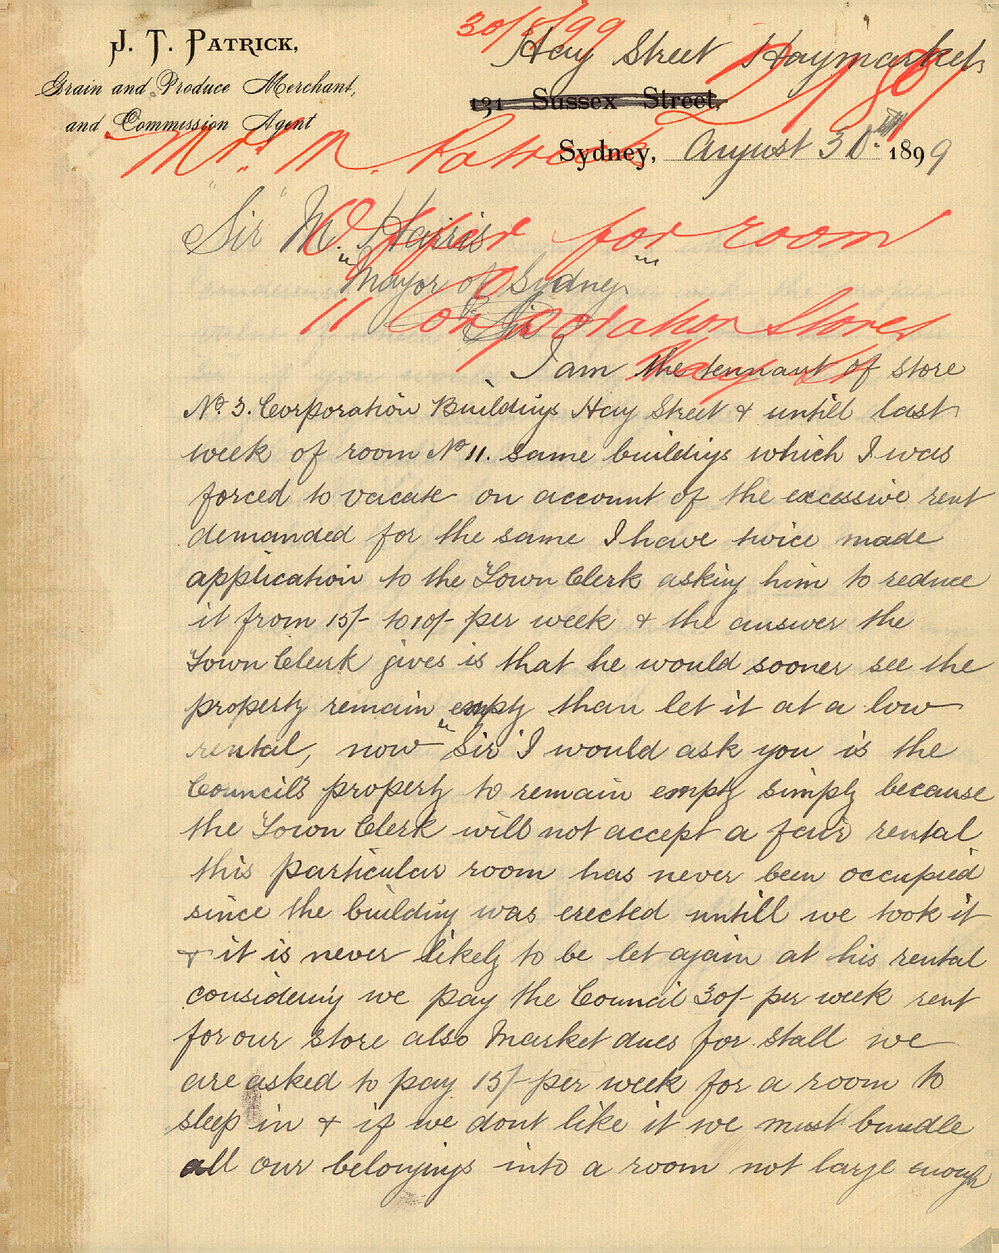 30/8/99
J. T. Patrick,
Grain and Produce Merchant,
and Commission Agent
Hay Street Haymarket
131 Sussex Street,
Sydney, August 30th 1899
Mr. M. Patrick
Offer for room
11 Corporation Stores
Hay St
"Sir" M. Harris
"Mayor of Sydney"
Sir
I am the tennant of store
No. 3. Corporation Buildings Hay Street & untill last
week of room No 11. same buildings which I was
forced to vacate on account of the excessive rent
demanded for the same I have twice made
application to the Town Clerk asking him to reduce
it from 15/- to 10/- per week & the answer the
Town Clerk gives is that he would sooner see the
property remain empty than let it at a low
rental, now "Sir" I would ask you is the
Council's property to remain empty simply because
the Town Clerk will not accept a fair rental
this particular room has never been occupied
since the building was erected untill we took it
& it is never likely to be let again at his rental
considering we pay the Council 30/- per week rent
for our store also Market dues for stall we
are asked to pay 15/- per week for a room to
sleep in & if we dont like it we must bundle
all our belongings into a room not large enough